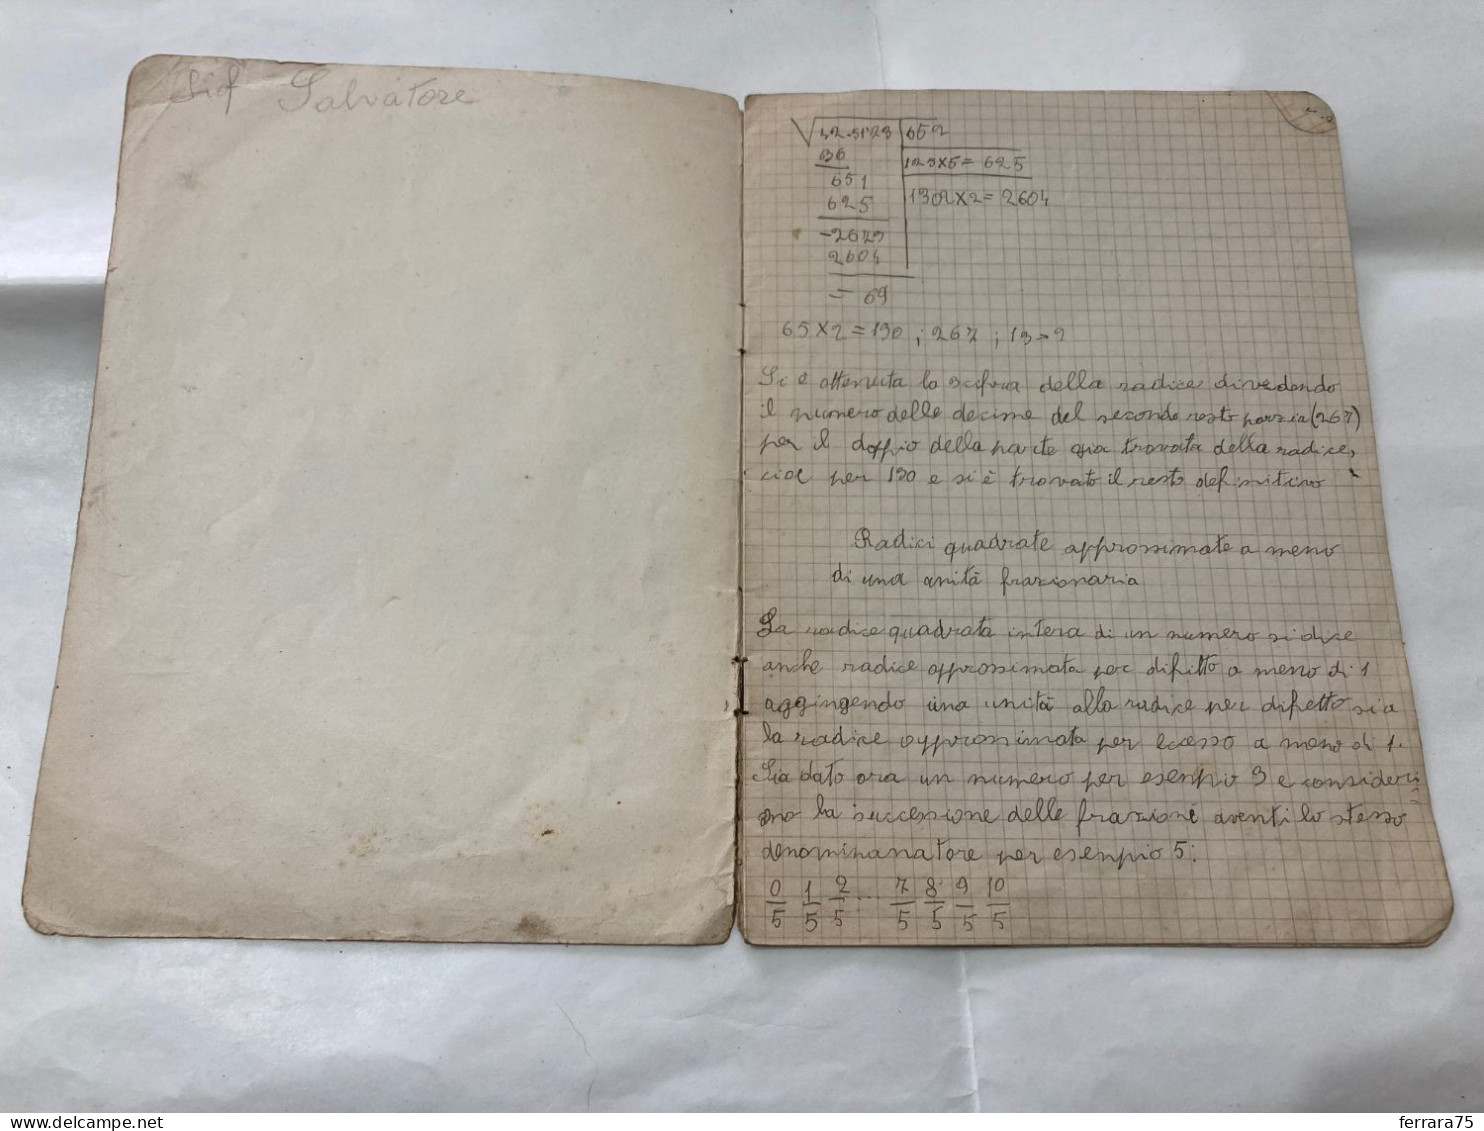 Salvatore
√42.5173 652
36 125x5= 625
651 1302x2= 2604
625
-2673
2604
= 69
65x2=130 ; 267 ; 13 = 2
Si è ottenuta la scifra della radice dividendo
il numero delle decime del secondo resto parzia (267)
per il doppio della parte gia trovata della radice,
cioè per 130 e si è trovato il resto definitivo
Radici quadrate approssimate a meno
di una unità frazionaria
La radice quadrata intera di un numero si dice
anche radice approssimata per difetto a meno di 1
aggingendo una unità alla radice per difetto si a
la radice approssimata per ecesso a meno di 1.
Sia dato ora un numero per esenpio 3 e consideri
amo la successione delle frazioni aventi lo stesso
denominanatore per esenpio 5:
0/5 1/5 2/5 ... 7/5 8/5 9/5 10/5
ferrara75